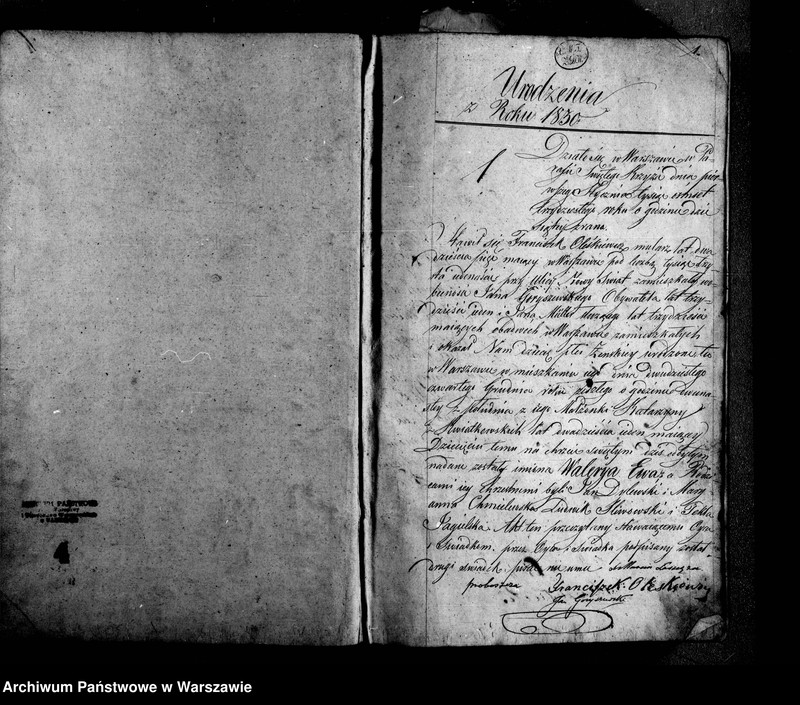 1.
Urodzenia
z Roku 1830
1
Działo się w Warszawie w Pa-
rafii Świętego Krzyża dnia pier-
wszego Stycznia tysiąc ośmset
trzydziestego roku o godzinie dzie
siątey zrana.
Stawił się Franciszek Oleśkiewicz mularz lat dwa
dzieścia pięć maiący w Warszawie pod liczbą tysiąc trzy
sta przy Ulicy Nowy Świat zamieszkały w
Jana Goryszewskiego Obywatela lat trzy-
dzieści ieden i Jana Müller lat trzydzieści
maiących obudwóch w Warszawie zamieszkałych
i okazał Nam dziecię płci żeńskiey urodzone tu
w Warszawie w mieszkaniu iego dnia dwudziestego
czwartego Grudnia roku zeszłego o godzinie dwuna-
stey z południa z iego Małżonki Katarzyny
z Kwiatkowskich lat dwadzieścia ieden maiącey
Dziecięciu temu na chrzcie świętym dziś odbytym
nadane zostały imiona Walerya Ewa, a Rodzi-
cami iey Chrzestnemi byli Jan Dylewski i Mary
anna Chmielewska Ludwik Śliwowski i Tekla
Jagielska Akt ten przeczytany stawaiącemu Oycu
i Świadkom przez Oyca i Świadka podpisany został
drugi świadek pisać nie umie
proboszcz Franciszek Oleskiewicz
Jan Goryszewski
4
Archiwum Państwowe w Warszawie